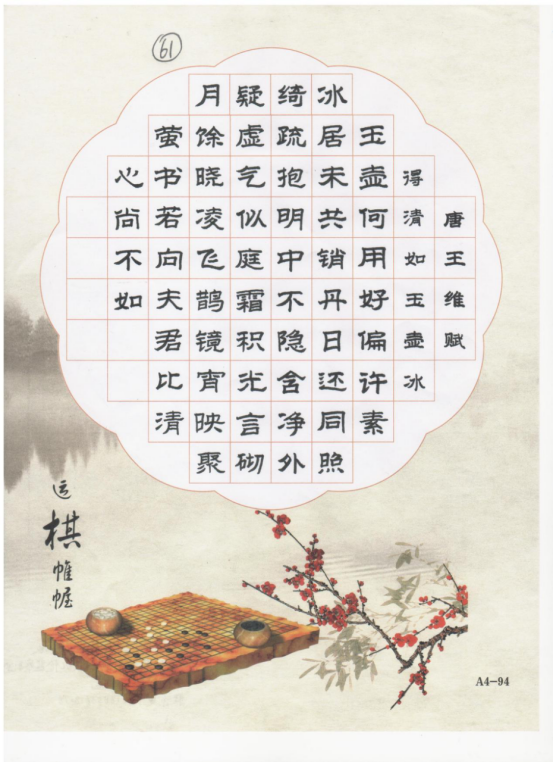 61
唐王维赋
得清如玉壶冰
玉壶何用好偏许素
冰居未共销丹日还同照
绮疏抱明中不隐含净外
疑虚气似庭霜积光言砌
月馀晓凌飞鹊镜宵映聚
萤书若向夫君比清
心尚不如
运棋帷幄
A4-94